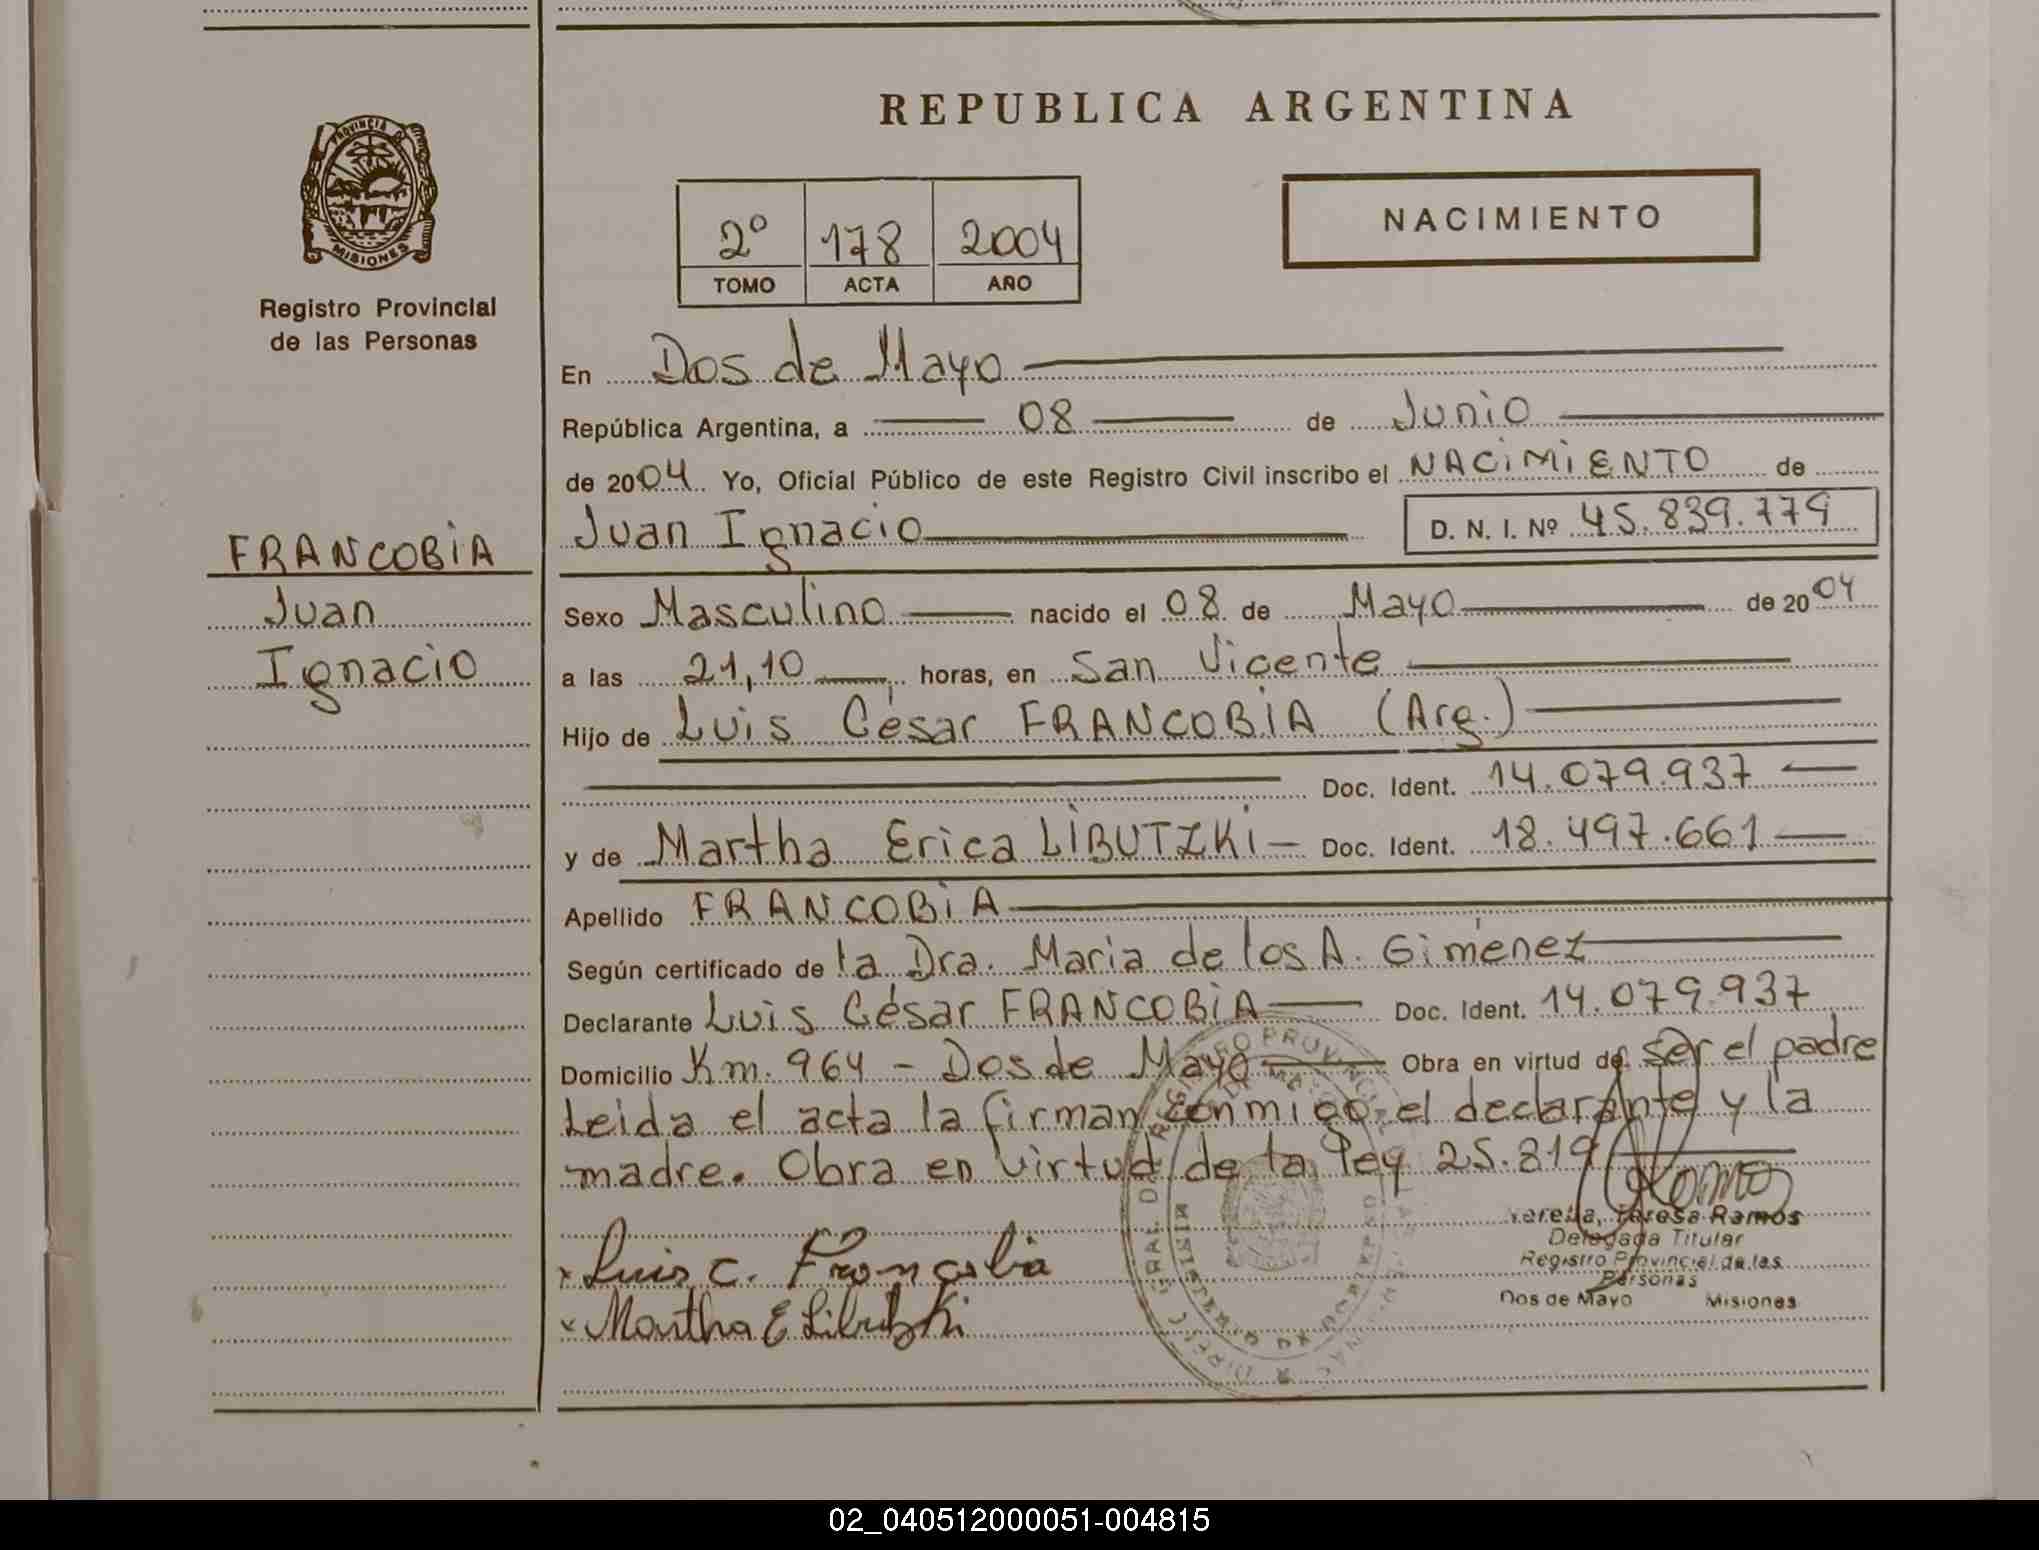 REPUBLICA ARGENTINA
PROVINCIA DE
MISIONES
Registro Provincial
de las Personas
2º 178 2004
TOMO ACTA AÑO
NACIMIENTO
En Dos de Mayo
República Argentina, a 08 de Junio
de 2004. Yo, Oficial Público de este Registro Civil inscribo el NACIMIENTO de
Juan Ignacio D. N. I. Nº 45.839.779
FRANCOBIA
Juan
Ignacio
Sexo Masculino nacido el 08 de Mayo de 2004
a las 21,10 horas, en San Vicente
Hijo de Luis César FRANCOBIA (Arg.)
Doc. Ident. 14.079.937
y de Martha Erica LIBUTZKI Doc. Ident. 18.497.661
Apellido FRANCOBIA
Según certificado de la Dra. Maria de los A. Giménez
Declarante Luis César FRANCOBIA Doc. Ident. 14.079.937
Domicilio Km. 964 - Dos de Mayo Obra en virtud de ser el padre
Leida el acta la firman conmigo el declarante y la
madre. Obra en virtud de la ley 25.819
Ramos
Teresa Ramos
Delegada Titular
Registro Provincial de las
Personas
Dos de Mayo Misiones
Luis C. Francobia
Martha E Libutzki
02_040512000051-004815